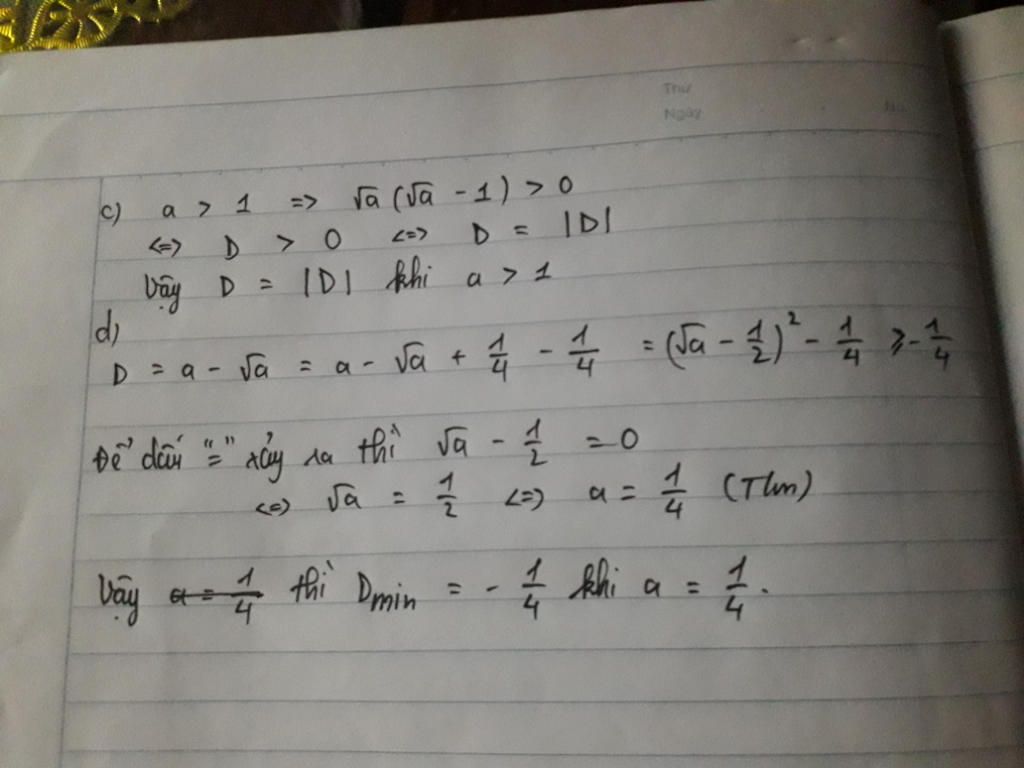 Thứ
Ngày
No.
c) a > 1 => √a (√a - 1) > 0
<=> D > 0 <=> D = |D|
Vậy D = |D| khi a > 1
d)
D = a - √a = a - √a + 1/4 - 1/4 = (√a - 1/2)² - 1/4 ≥ -1/4
Để dấu "=" xảy ra thì √a - 1/2 = 0
<=> √a = 1/2 <=> a = 1/4 (Tlm)
Vậy a = 1/4 thì Dmin = - 1/4 khi a = 1/4.